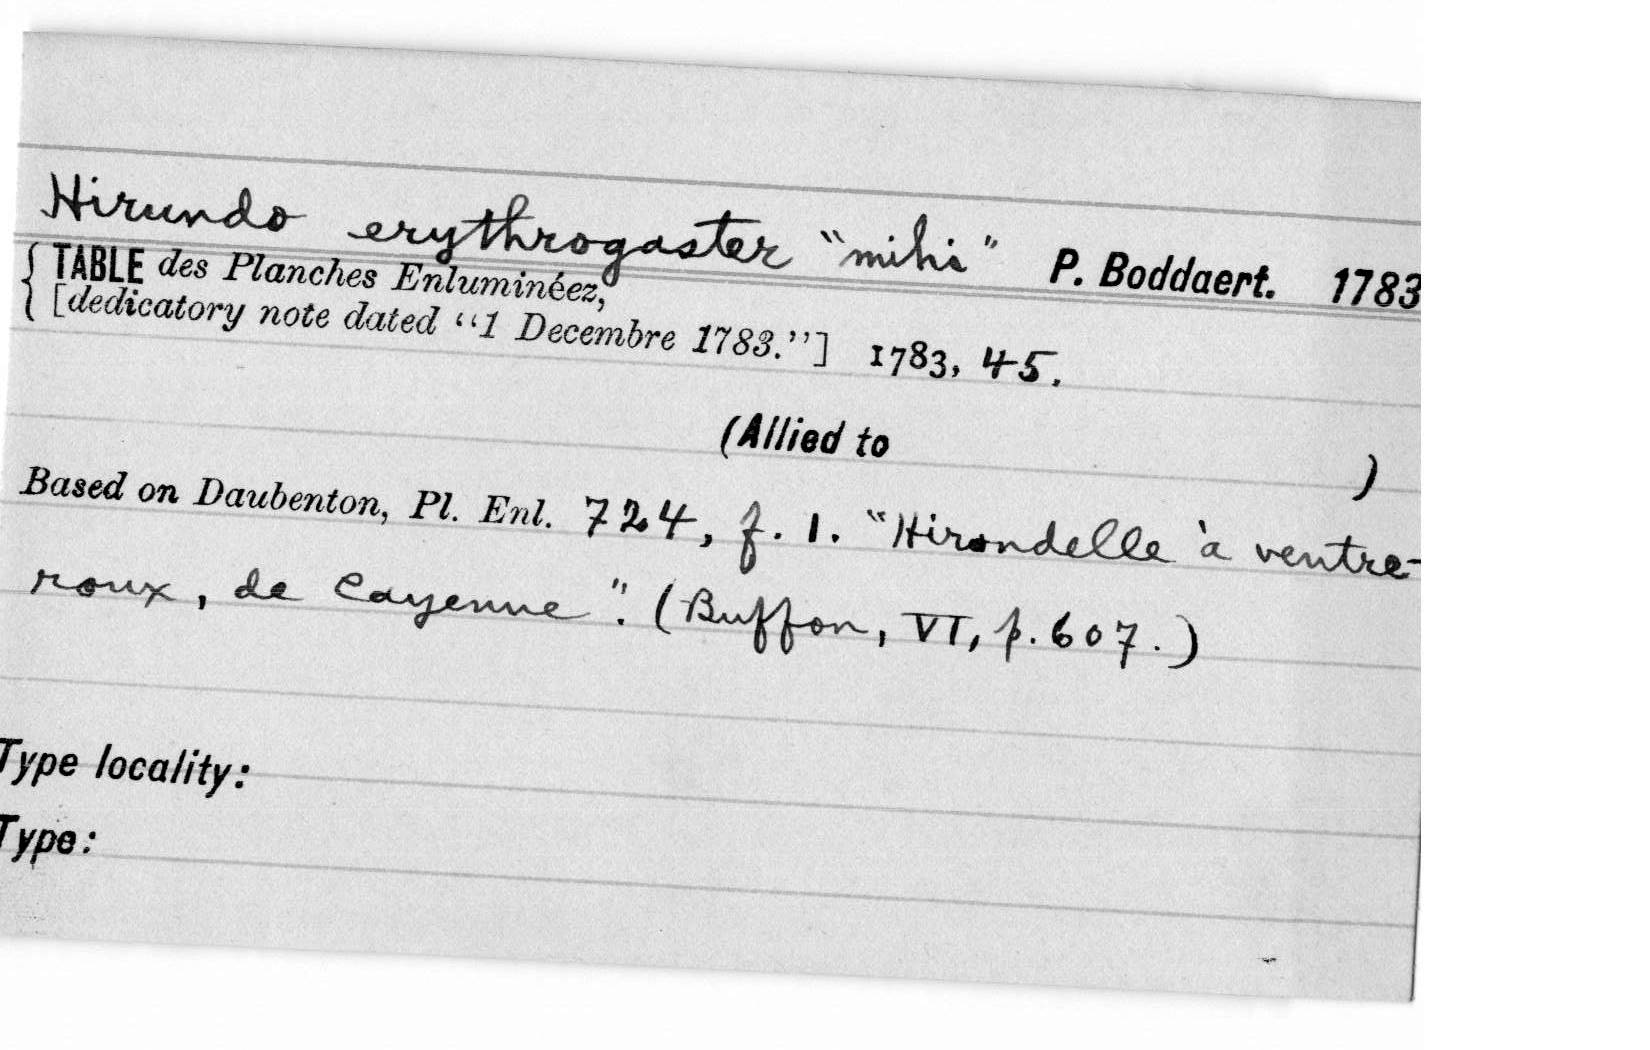 Hirundo erythrogaster "mihi" P. Boddaert. 1783
{ TABLE des Planches Enluminéez,
[dedicatory note dated "1 Decembre 1783."] 1783, 45.
(Allied to )
Based on Daubenton, Pl. Enl. 724, f. 1. "Hirondelle à ventre-
roux, de Cayenne". (Buffon, VI, p. 607.)
Type locality:
Type: